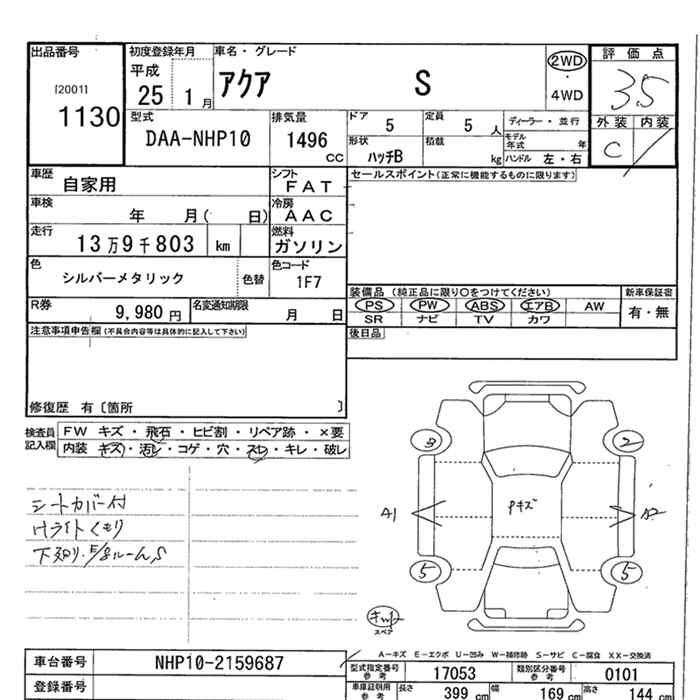 出品番号
[2001]
1130
初度登録年月
平成
25 1 月
車名・グレード
アクア S
2WD
・
4WD
評価点
3.5
外装 内装
C
型式
DAA-NHP10
排気量
1496
CC
ドア
5
定員
5 人
形状
ハッチB
積載
kg
ディーラー・並行
モデル年式 年
ハンドル 左・右
車歴
自家用
シフト
FAT
車検
年 月( 日)
冷房
AAC
走行
13万9千803 km
燃料
ガソリン
色
シルバーメタリック
色替
色コード
1F7
R券
9,980 円
名変通知期限
月 日
セールスポイント(正常に機能するものに限ります)
装備品 (純正品に限り○をつけてください)
PS PW ABS エアB AW
SR ナビ TV カワ
新車保証書
有・無
後日品
注意事項申告欄(不具合内容等は具体的に記入して下さい)
修復歴 有〔箇所 〕
検査員記入欄
FW キズ・飛石・ヒビ割・リペア跡・×要
内装 キズ・汚レ・コゲ・穴・スレ・キレ・破レ
シートカバー付
Hライトくもり
3
2
A1
Pキズ
A2
5
5
キット
スペア
A-キズ E-エクボ U-凹み W-補修跡 S-サビ C-腐食 XX-交換済
車台番号
NHP10-2159687
登録番号
型式指定番号
参考
17053
類別区分番号
参考
0101
車庫証明用
参考
長さ
399 cm
幅
169 cm
高さ
144 cm